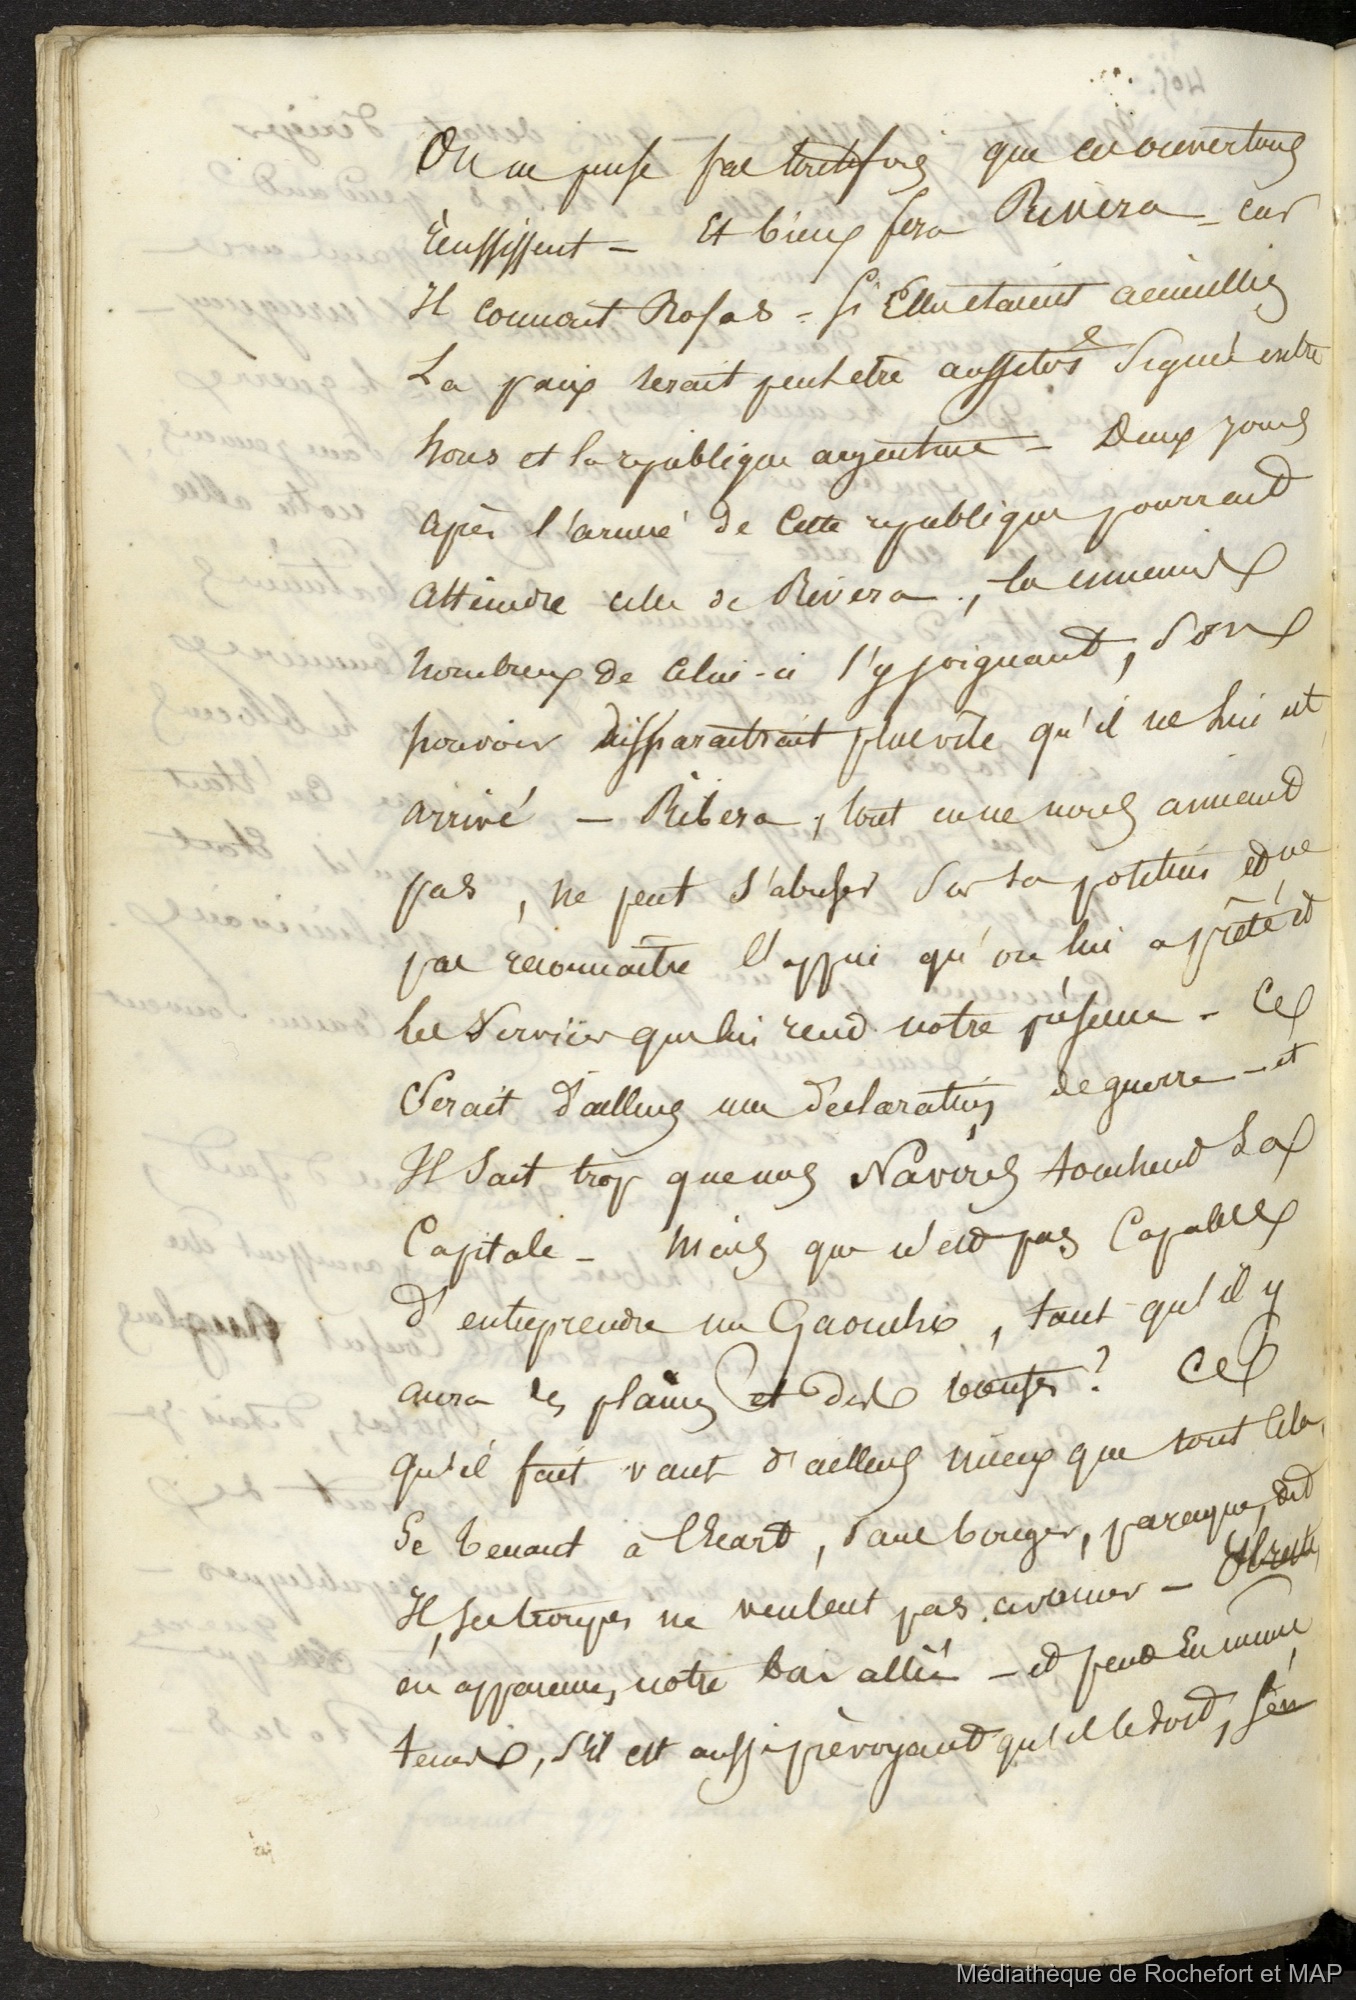 On ne pense pas toutefois que ces ouvertures
Réussissent – Et bien fera Rivera – car
Il connait Rosas – Si Elles etaient accueillies
La paix serait peut etre aussitôt Signée entre
Nous et la republique argentine – Deux jours
après l'armée de Cette republique pourrait
Atteindre celle de Rivera , les ennemis
nombreux de Celui-ci s'y joignant, Son
pouvoir disparaitrait plus vite qu'il ne lui est
arrivé – Ribera, tout en ne nous aimant
pas, ne peut s'abuser Sur Sa position et ne
pas reconnaitre l'appui qu'on lui a prêté et
les Services que lui rend notre présence – Ce
Serait d'ailleurs une déclaration de guerre – et
Il Sait trop que nos Navires touchent La
Capitale – Mais que n'est pas Capable
d'entreprendre un Gaoucho, tant qu'il y
aura des plaines et des ? Ce
qu'il fait vaut d'ailleurs mieux que tout Cela,
Se tenant à l'Ecart, Sans bouger, parceque, dit
Il, Ses troupes ne veulent pas avancer – Il reste,
en apparence, notre bon allié – et peut En même
tems, S'il est aussi prévoyant qu'il le doit, S'en
Médiathèque de Rochefort et MAP